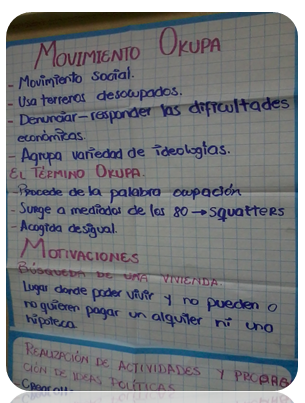 MOVIMIENTO OKUPA
- Movimiento social.
- Usa terrenos desocupados.
- Denunciar - responder las dificultades
económicas.
- Agrupa variedad de ideologías.
EL TÉRMINO OKUPA.
- Procede de la palabra ocupación
- Surge a mediados de los 80 → squatters
- Acogida desigual.
MOTIVACIONES
BÚSQUEDA DE UNA VIVIENDA.
Lugar donde poder vivir y no pueden o
no quieren pagar un alquiler ni una
hipoteca
REALIZACIÓN DE ACTIVIDADES Y PROPAGA
CIÓN DE IDEAS POLÍTICAS